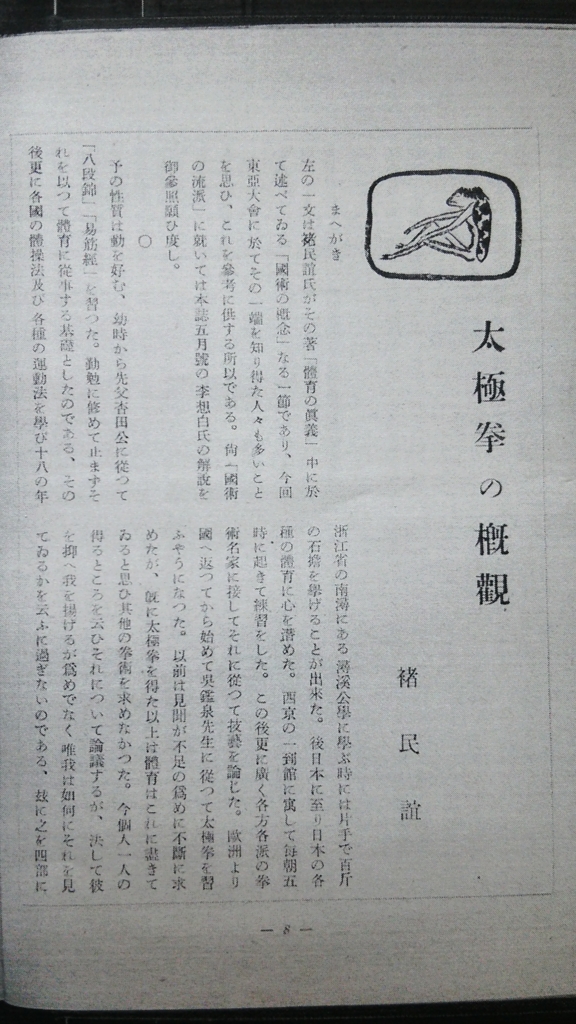 太極拳の概觀
褚民誼
まへがき
左の一文は褚民誼氏がその著「體育の眞義」中に於
て述べてゐる「國術の概念」なる一節であり、今回
東亞大會に於てその一端を知り得た人々も多いこと
を思ひ、これを參考に供する所以である。尙「國術
の流派」に就いては本誌五月號の李想白氏の解說を
御參照願ひ度し。
〇
予の性質は動を好む、幼時から先父杏田公に從つて
「八段錦」「易筋經」を習つた。勤勉に修めて止まずそ
れを以つて體育に從事する基礎としたのである、その
後更に各國の體操法及び各種の運動法を學び十八の年
浙江省の南潯にある潯溪公學に學ぶ時には片手で百斤
の石擔を擧げることが出來た。後日本に至り日本の各
種の體育に心を潛めた。西京の一到館に寓して每朝五
時に起きて練習をした。この後更に廣く各方各派の拳
術名家に接してそれに從つて技藝を論じた。歐洲より
國へ返つてから始めて吳鑑泉先生に從つて太極拳を習
ふやうになつた。以前は見聞が不足の爲めに不斷に求
めたが、旣に太極拳を得た以上は體育はこれに盡きて
ゐると思ひ其他の拳術を求めなかつた。今個人一人の
得るところを云ひそれについて論議するが、決して彼
を抑へ我を揚げるが爲めでなく唯我は如何にそれを見
てゐるかを云ふに過ぎないのである、玆に之を四部に
— 8 —